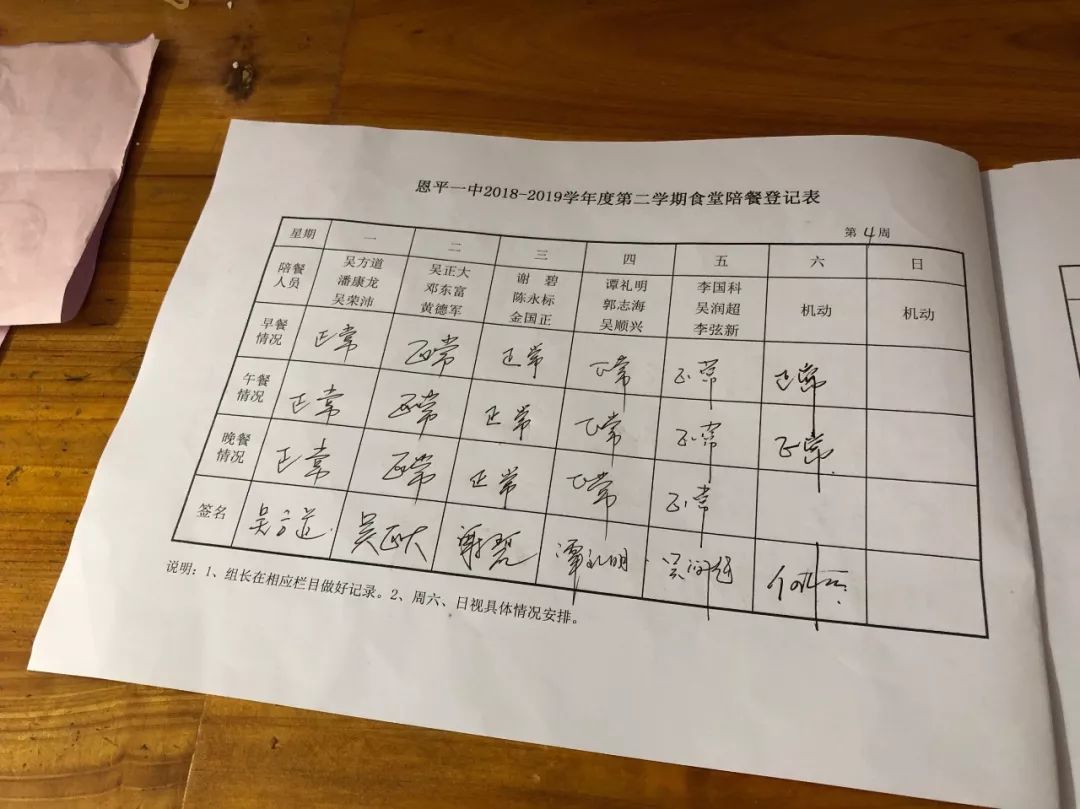 恩平一中2018-2019学年度第二学期食堂陪餐登记表
第4周
星期 一 二 三 四 五 六 日
陪餐人员 吴方道 潘康龙 吴荣沛 吴正大 邓东富 黄德军 谢碧 陈永标 金国正 谭礼明 郭志海 吴顺兴 李国科 吴润超 李弦新 机动 机动
早餐情况 正常 正常 正常 正常 正常 正常
午餐情况 正常 正常 正常 正常 正常 正常
晚餐情况 正常 正常 正常 正常 正常
签名 吴方道 吴正大 谢碧 谭礼明 吴润超
说明：1、组长在相应栏目做好记录。2、周六、日视具体情况安排。